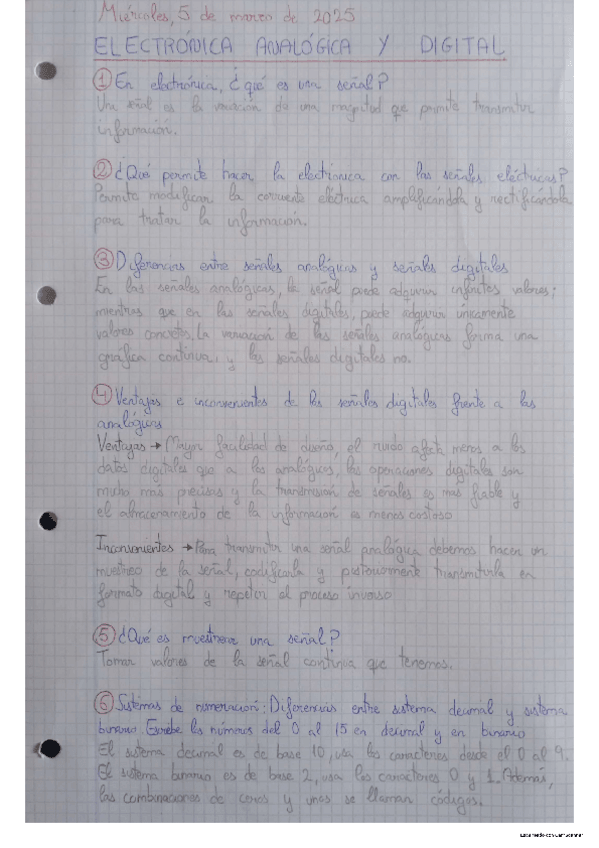 Miércoles, 5 de marzo de 2025
ELECTRÓNICA ANALÓGICA Y DIGITAL
① En electrónica, ¿qué es una señal?
Una señal es la variación de una magnitud que permite transmitir
información.
② ¿Qué permite hacer la electrónica con las señales eléctricas?
Permite modificar la corriente eléctrica amplificándola y rectificándola
para tratar la información.
③ Diferencias entre señales analógicas y señales digitales
En las señales analógicas, la señal puede adquirir infinitos valores;
mientras que en las señales digitales, puede adquirir únicamente
valores concretos. La variación de las señales analógicas forma una
gráfica continua, y las señales digitales no.
④ Ventajas e inconvenientes de las señales digitales frente a las
analógicas
Ventajas → Mayor facilidad de diseño, el ruido afecta menos a los
datos digitales que a los analógicos, las operaciones digitales son
mucho más precisas y la transmisión de señales es más fiable y
el almacenamiento de la información es menos costoso
Inconvenientes → Para transmitir una señal analógica debemos hacer un
muestreo de la señal, codificarla y posteriormente transmitirla en
formato digital y repetir el proceso inverso
⑤ ¿Qué es muestrear una señal?
Tomar valores de la señal continua que tenemos.
⑥ Sistemas de numeración: Diferencias entre sistema decimal y sistema
binario. Escribe los números del 0 al 15 en decimal y en binario
El sistema decimal es de base 10, usa los caracteres desde el 0 al 9.
El sistema binario es de base 2, usa los caracteres 0 y 1. Además,
las combinaciones de ceros y unos se llaman códigos.